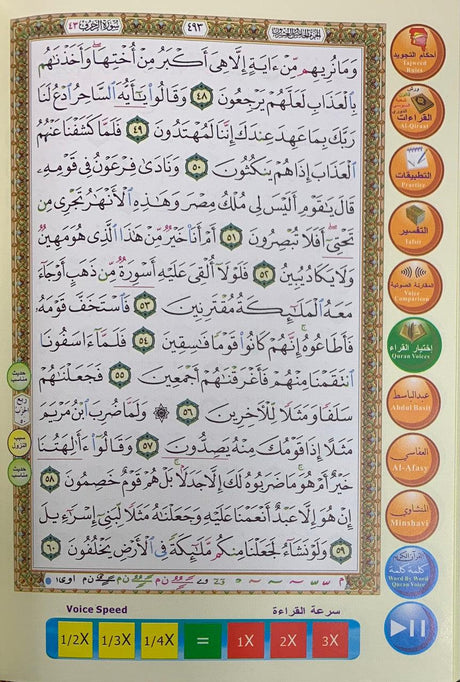 الجزء الخامس والعشرون
٤٩٣
سورة الزخرف ٤٣
وَمَا نُرِيهِم مِّنْ ءَايَةٍ إِلَّا هِىَ أَكْبَرُ مِنْ أُخْتِهَا وَأَخَذْنَٰهُم
بِٱلْعَذَابِ لَعَلَّهُمْ يَرْجِعُونَ ٤٨ وَقَالُوا۟ يَٰٓأَيُّهَ ٱلسَّاحِرُ ٱدْعُ لَنَا
رَبَّكَ بِمَا عَهِدَ عِندَكَ إِنَّنَا لَمُهْتَدُونَ ٤٩ فَلَمَّا كَشَفْنَا عَنْهُمُ
ٱلْعَذَابَ إِذَا هُمْ يَنكُثُونَ ٥٠ وَنَادَىٰ فِرْعَوْنُ فِى قَوْمِهِۦ
قَالَ يَٰقَوْمِ أَلَيْسَ لِى مُلْكُ مِصْرَ وَهَٰذِهِ ٱلْأَنْهَٰرُ تَجْرِى مِن
تَحْتِىٓ أَفَلَا تُبْصِرُونَ ٥١ أَمْ أَنَا۠ خَيْرٌ مِّنْ هَٰذَا ٱلَّذِى هُوَ مَهِينٌ
وَلَا يَكَادُ يُبِينُ ٥٢ فَلَوْلَآ أُلْقِىَ عَلَيْهِ أَسْوِرَةٌ مِّن ذَهَبٍ أَوْ جَآءَ
مَعَهُ ٱلْمَلَٰٓئِكَةُ مُقْتَرِنِينَ ٥٣ فَٱسْتَخَفَّ قَوْمَهُۥ
فَأَطَاعُوهُ إِنَّهُمْ كَانُوا۟ قَوْمًا فَٰسِقِينَ ٥٤ فَلَمَّآ ءَاسَفُونَا
ٱنتَقَمْنَا مِنْهُمْ فَأَغْرَقْنَٰهُمْ أَجْمَعِينَ ٥٥ فَجَعَلْنَٰهُمْ
سَلَفًا وَمَثَلًا لِّلْءَاخِرِينَ ٥٦ ۞ وَلَمَّا ضُرِبَ ٱبْنُ مَرْيَمَ
مَثَلًا إِذَا قَوْمُكَ مِنْهُ يَصِدُّونَ ٥٧ وَقَالُوٓا۟ ءَأَٰلِهَتُنَا
خَيْرٌ أَمْ هُوَ مَا ضَرَبُوهُ لَكَ إِلَّا جَدَلًۢا بَلْ هُمْ قَوْمٌ خَصِمُونَ ٥٨
إِنْ هُوَ إِلَّا عَبْدٌ أَنْعَمْنَا عَلَيْهِ وَجَعَلْنَٰهُ مَثَلًا لِّبَنِىٓ إِسْرَٰٓءِيلَ
٥٩ وَلَوْ نَشَآءُ لَجَعَلْنَا مِنكُم مَّلَٰٓئِكَةً فِى ٱلْأَرْضِ يَخْلُفُونَ ٦٠
أحكام التجويد
Tajweed Rules
ورش
القراءات
Al-Qiraat
التطبيقات
Practice
التفسير
Tafsir
المقارنة الصوتية
Voice Comparison
اختيار القراء
Quran Voices
عبدالباسط
Abdul Basit
العفاسي
Al-Afasy
المنشاوي
Minshavi
القرآن الكريم
كلمة كلمة
Word By Word Quran Voice
حديث مناسب
ربع
سبب النزول
حديث مناسب
Voice Speed
سرعة القراءة
1/2X
1/3X
1/4X
=
1X
2X
3X